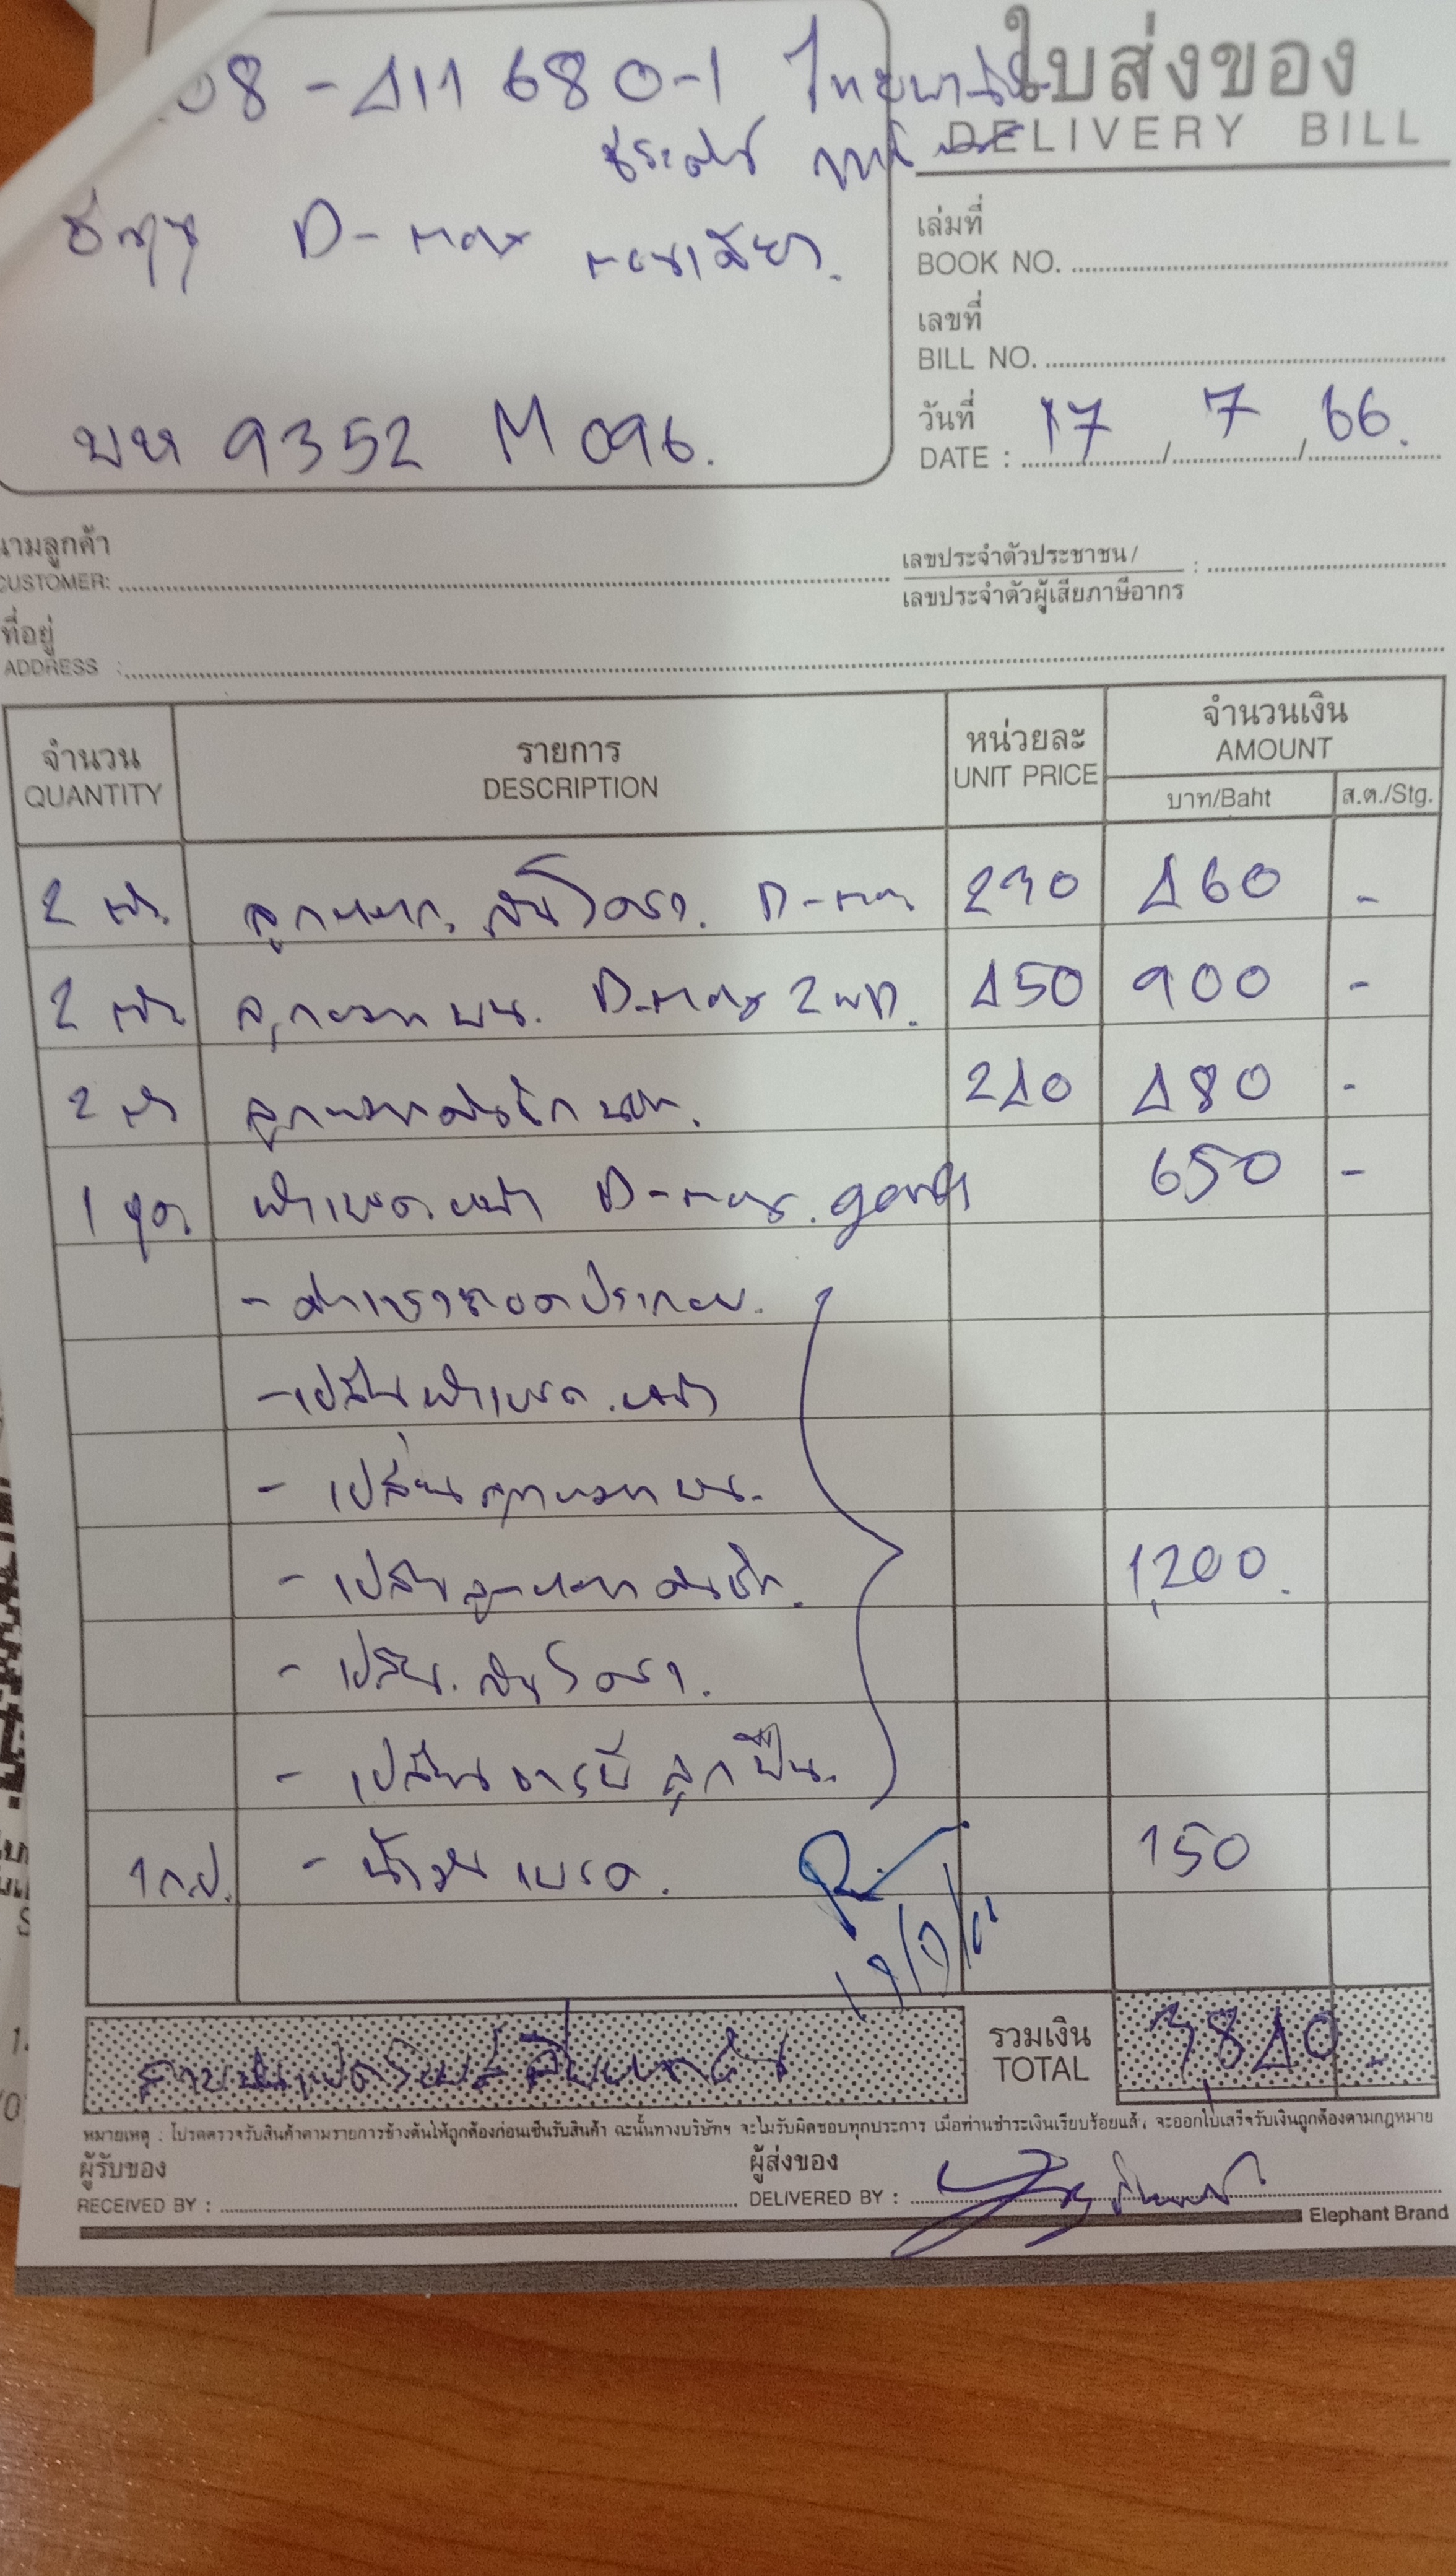 08-411680-1 ไทยพาณิชย์
ใบส่งของ
DELIVERY BILL
อีซูซุ D-max ตอนเดียว.
บห 9352 M096.
เล่มที่
BOOK NO.
เลขที่
BILL NO.
วันที่
DATE : 17 / 7 / 66.
นามลูกค้า
CUSTOMER:
เลขประจำตัวประชาชน/ :
เลขประจำตัวผู้เสียภาษีอากร
ที่อยู่
ADDRESS :
จำนวน QUANTITY รายการ DESCRIPTION หน่วยละ UNIT PRICE จำนวนเงิน AMOUNT
บาท/Baht ส.ต./Stg.
2 ตัว ลูกหมาก กันโคลง. D-max 230 460 -
2 ตัว ลูกหมาก บน. D-max 2WD. 450 900 -
2 ตัว ลูกหมากคันชัก นอก. 240 480 -
1 ชุด ผ้าเบรค.หน้า D-max. 650 -
- ค่าแรงถอดประกอบ.
- เปลี่ยนผ้าเบรค.หน้า
- เปลี่ยนลูกหมาก บน.
- เปลี่ยนลูกหมาก คันชัก. 1,200.
- เปลี่ยน. กันโคลง.
- เปลี่ยนจารบี ลูกปืน.
1 กป. - น้ำมันเบรค. 150
สามพันแปดร้อยสี่สิบบาทถ้วน รวมเงิน TOTAL 3,840 -
หมายเหตุ : โปรดตรวจรับสินค้าตามรายการข้างต้นให้ถูกต้องก่อนเซ็นรับสินค้า ฉะนั้นทางบริษัทฯ จะไม่รับผิดชอบทุกประการ เมื่อท่านชำระเงินเรียบร้อยแล้ว จะออกใบเสร็จรับเงินถูกต้องตามกฎหมาย
ผู้รับของ
RECEIVED BY :
ผู้ส่งของ
DELIVERED BY :
Elephant Brand